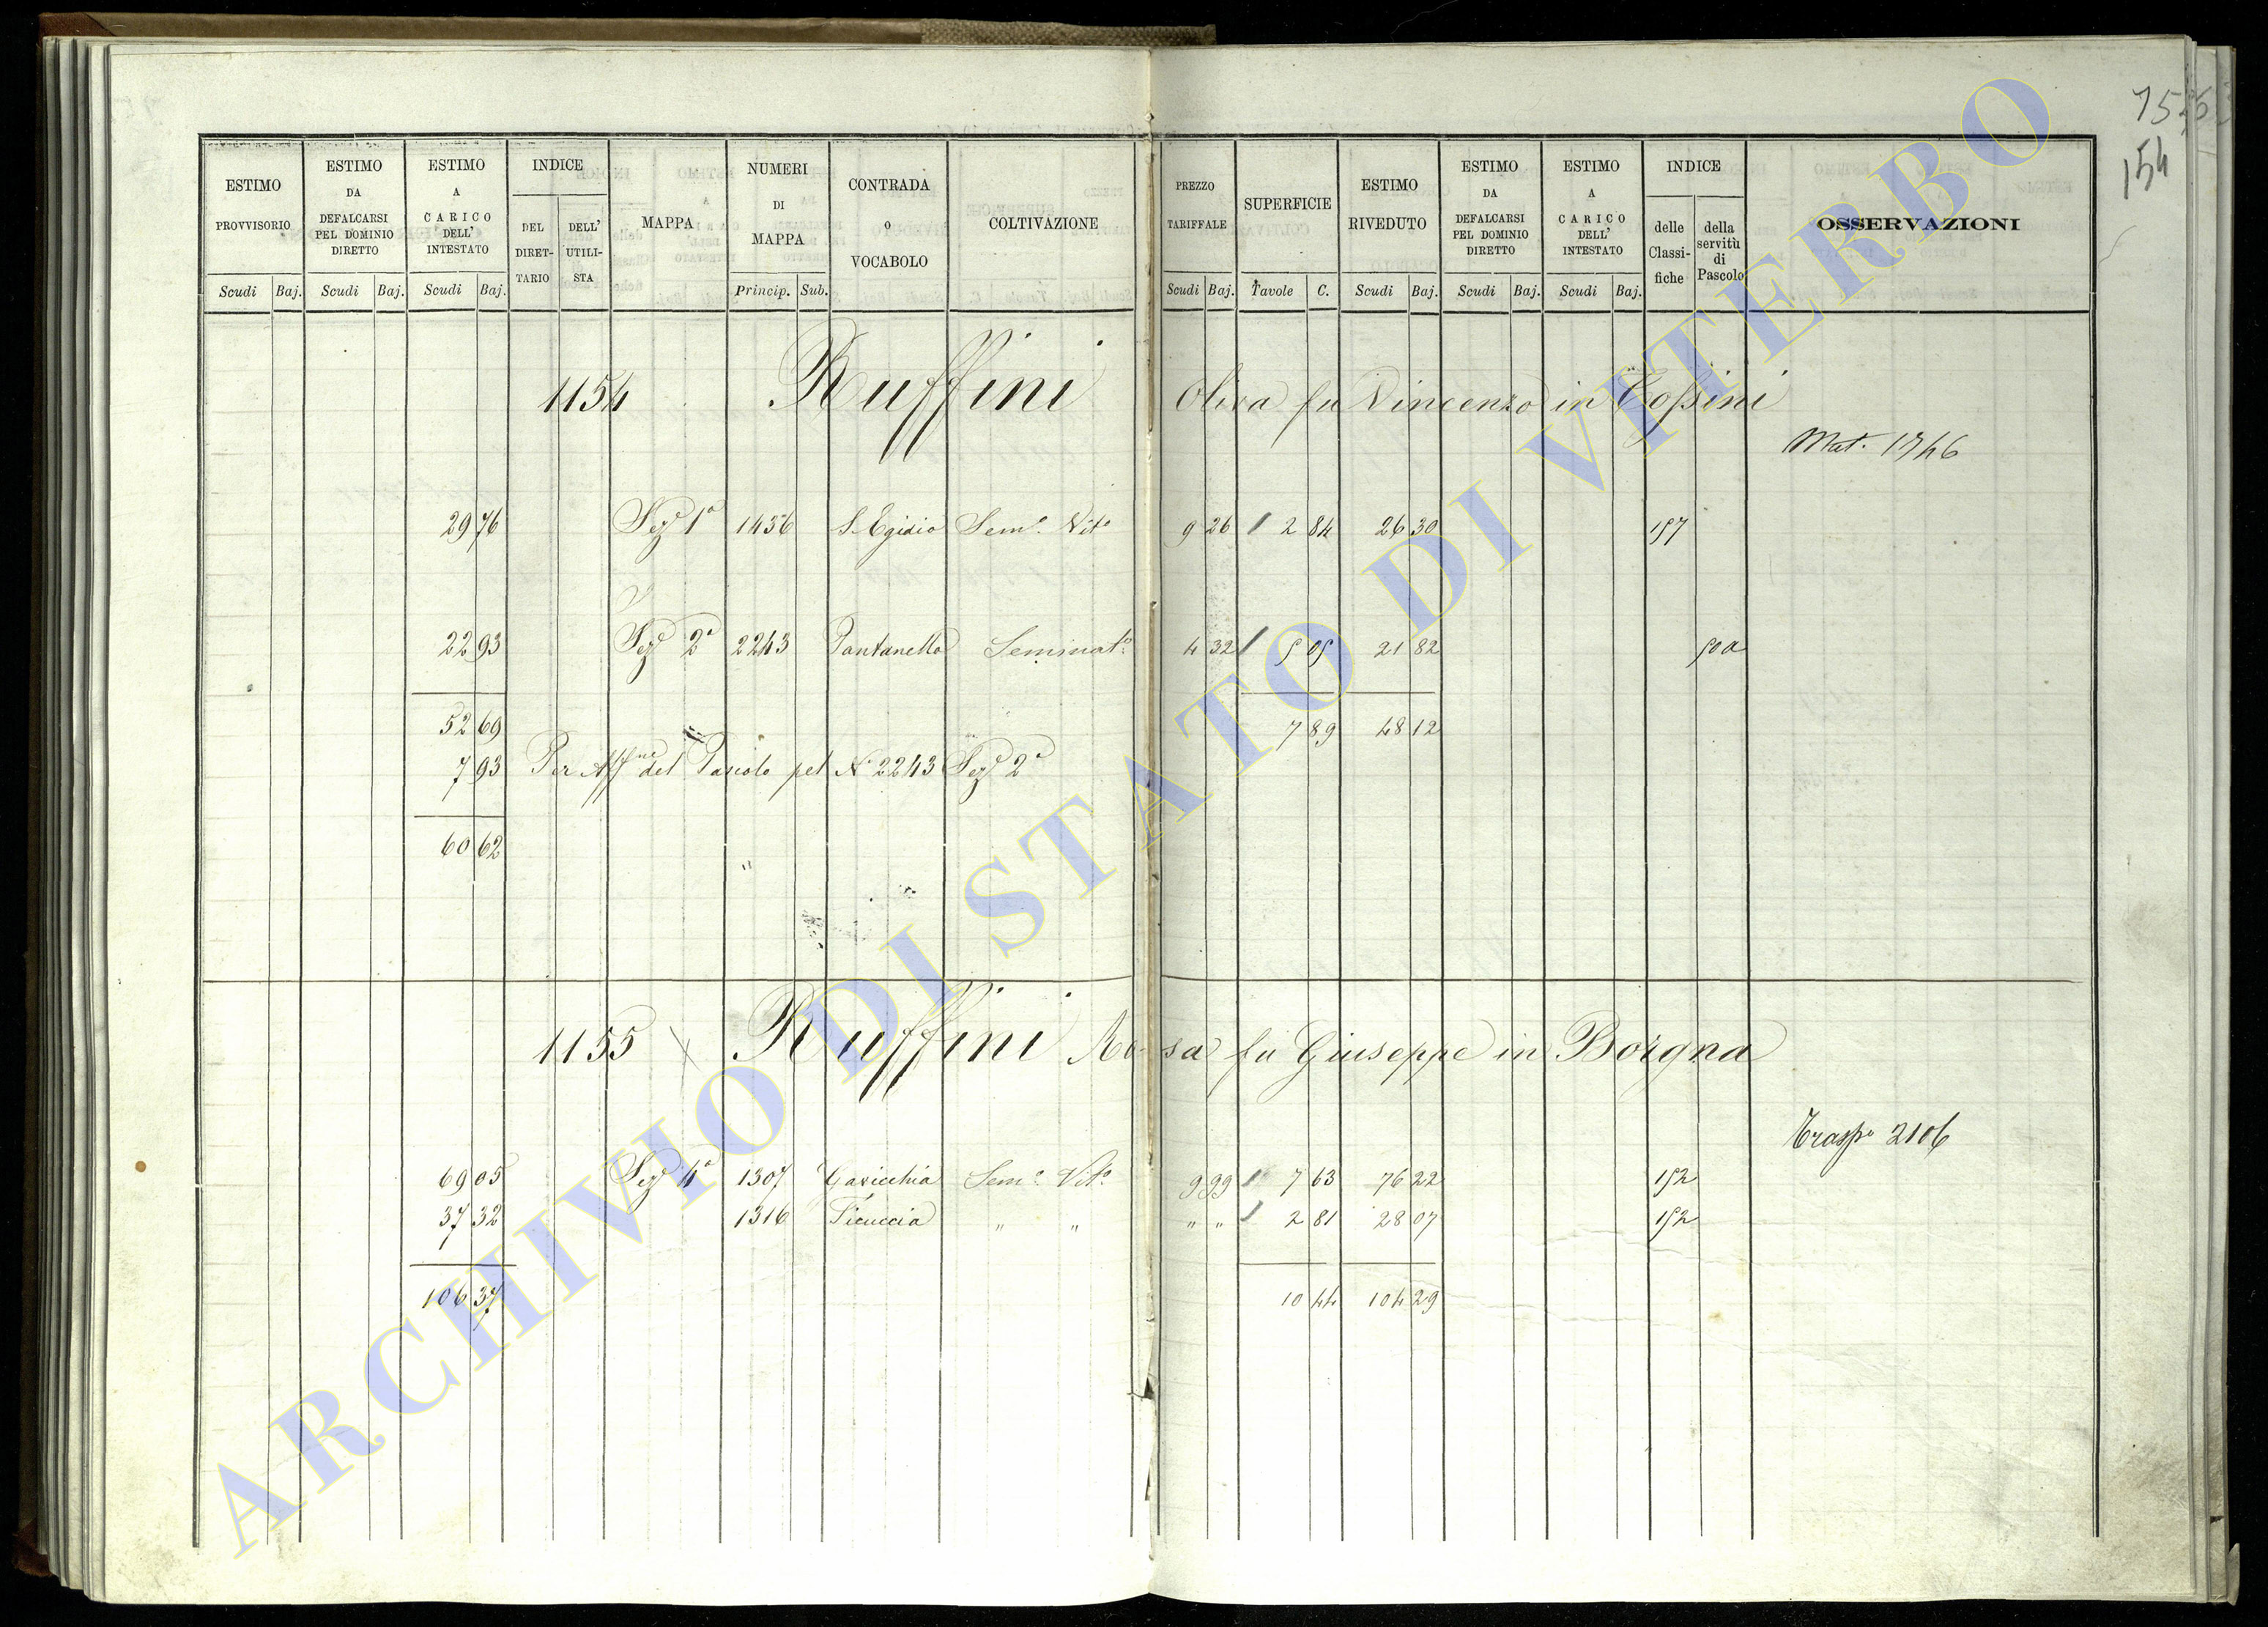 154
ESTIMO PROVVISORIO
ESTIMO DA DEFALCARSI PEL DOMINIO DIRETTO
ESTIMO A CARICO DELL' INTESTATO
INDICE
DEL DIRET-TARIO
DELL' UTILI-STA
MAPPA
NUMERI DI MAPPA
CONTRADA o VOCABOLO
COLTIVAZIONE
PREZZO TARIFFALE
SUPERFICIE
ESTIMO RIVEDUTO
ESTIMO DA DEFALCARSI PEL DOMINIO DIRETTO
ESTIMO A CARICO DELL' INTESTATO
INDICE
delle Classi-fiche
della servitù di Pascolo
OSSERVAZIONI
Scudi Baj. Scudi Baj. Scudi Baj. Princip. Sub. Scudi Baj. Tavole C. Scudi Baj. Scudi Baj. Scudi Baj.
1154 Ruffini Oliva fu Vincenzo in
Mat. 1746
29 76 Sezᵉ 1ª 1436 S. Egidio Semᵒ Vitᵒ 9 26 2 84 26 30 157
22 93 Sezᵉ 2ª 2243 Pantanella Seminatᵒ 4 32 5 05 21 82 50a
52 69 7 89 48 12
7 93 Per Affⁿᵉ del Pascolo pel Nº 2243 Sezᵉ 2ª
60 62
1155 Ruffini Rosa fu Giuseppe in Borgna
Traspᵒ 2106
69 05 Sezᵉ 4ª 1307 Gavicchia Semᵒ Vitᵒ 9 99 7 63 76 22 152
37 32 1316 Ficuccia " " " " 2 81 28 07 152
106 37 10 44 104 29
ARCHIVIO DI STATO DI VITERBO